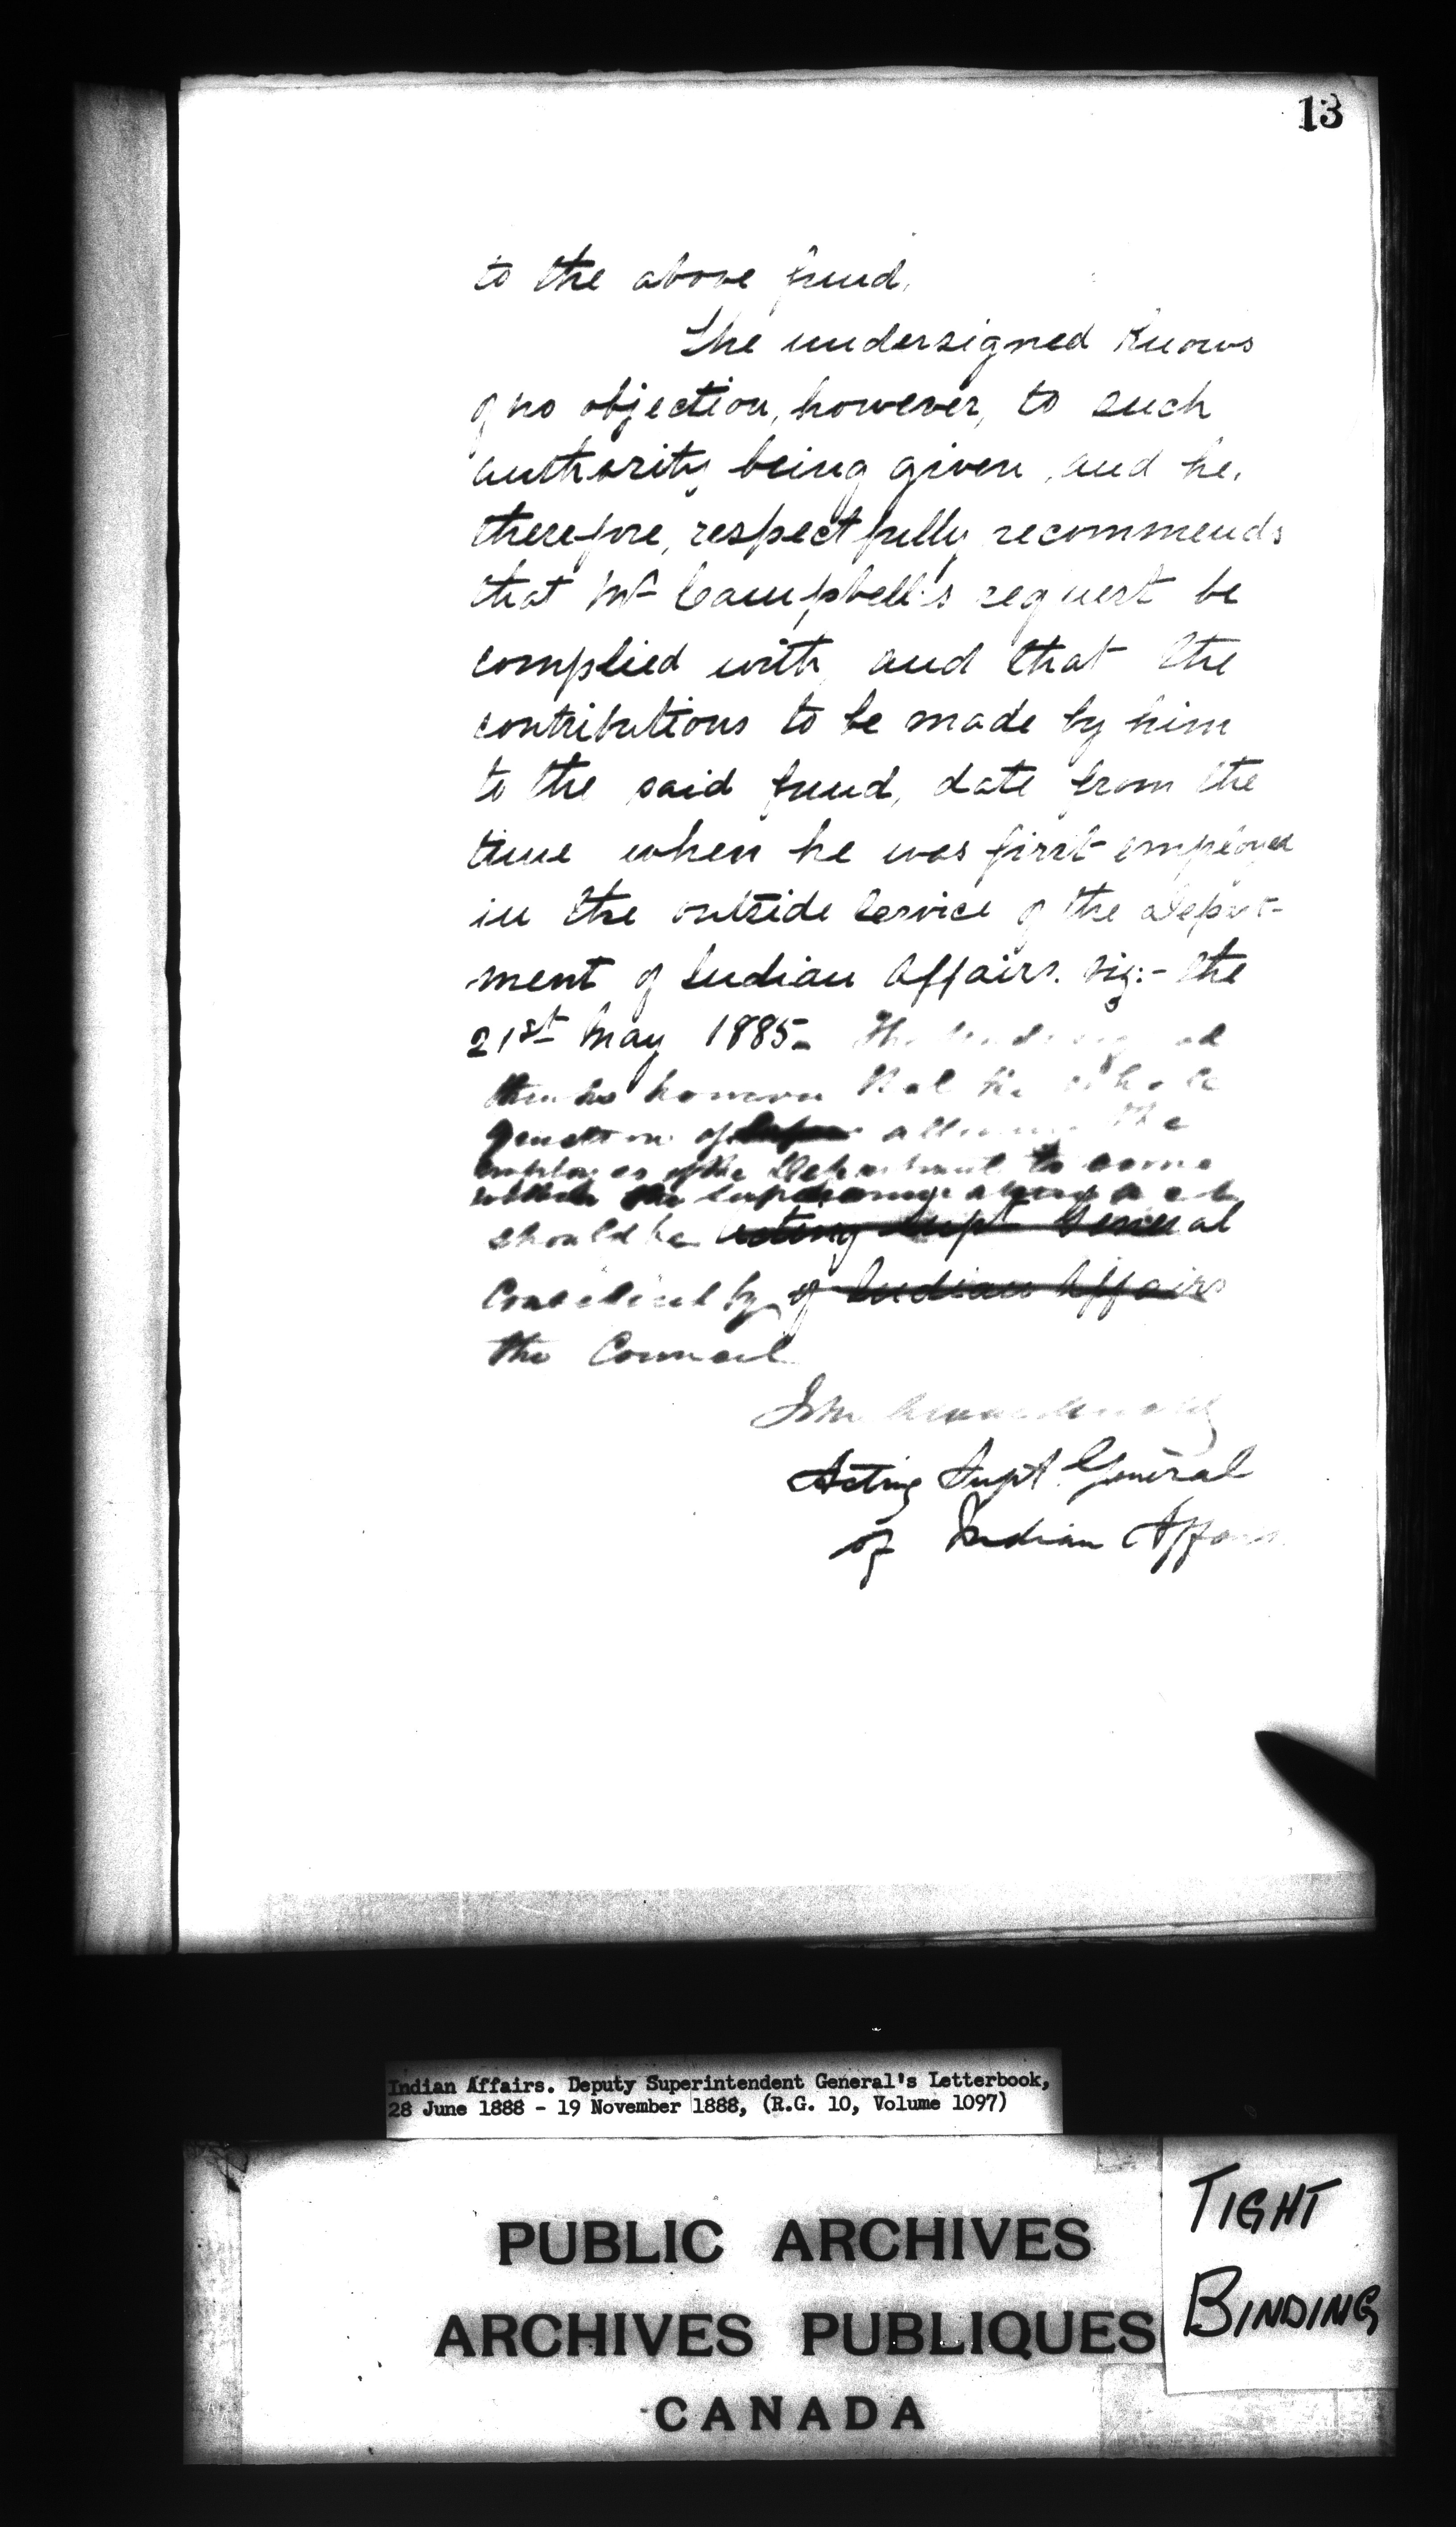 13
to the above fund.
The undersigned knows
of no objection, however, to such
authority being given, and he,
therefore, respectfully recommends
that Mr Campbell's request be
complied with, and that the
contributions to be made by him
to the said fund, date from the
time when he was first employed
in the outside service of the Depart-
ment of Indian Affairs. viz:- the
21st May 1885. The undersigned
thinks however that the whole
question of allowing the
employees of the Department to come
within the Superannuation Act
should be Acting Supt General
considered by of Indian Affairs
the Council
John A Macdonald
Acting Supt. General
of Indian Affairs
Indian Affairs. Deputy Superintendent General's Letterbook,
28 June 1888 - 19 November 1888, (R.G. 10, Volume 1097)
PUBLIC ARCHIVES
ARCHIVES PUBLIQUES
CANADA
TIGHT
BINDING